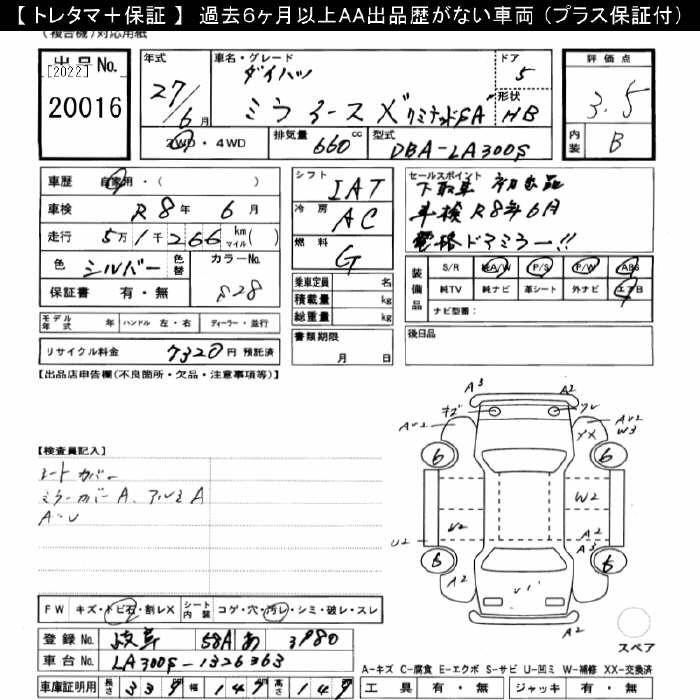 【 トレタマ＋保証 】 過去６ヶ月以上ＡＡ出品歴がない車両 （プラス保証付）
(複合機)対応用紙
出品No. [2022] 20016
年式 27/6月
車名・グレード ダイハツ ミライース X リミテッドSA
ドア 5
形状 HB
2WD・4WD
排気量 660 cc
型式 DBA-LA300S
評価点 3.5
内装 B
車歴 自家用・( )
車検 R8年 6月
走行 5万1千266 km マイル( )
色 シルバー 色替 カラーNo. S28
保証書 有・無
モデル年式 年 ハンドル 左・右 ディーラー・並行
リサイクル料金 7320円 預託済
シフト IAT
冷房 AC
燃料 G
乗車定員 名
積載量 kg
総重量 kg
書類期限 月 日
セールスポイント
下取車 初出品
車検R8年6月
電格ドアミラー!!
装備品 S/R 純A/W P/S P/W ABS
純TV 純ナビ 革シート 外ナビ エアB
ナビ型番：
後日品
【出品店申告欄(不良箇所・欠品・注意事項等)】
【検査員記入】
シートカバー
ミラーカバーA、アルミA
A3 A2
キズ ワレ
AU2 AU2
YX W3
6 6
W2
U2 U2 A2
A3
6 6
A2
A2
スペア
FW キズ・トビ石・割レX シート内装 コゲ・穴・汚レ・シミ・破レ・スレ
登録No. 岐阜 58A あ 3980
車台No. LA300S-1326363
車庫証明用 長さ 339 幅 147 高さ 149
A-キズ C-腐食 E-エクボ S-サビ U-凹ミ W-補修 XX-交換済
工具 有・無 ジャッキ 有・無